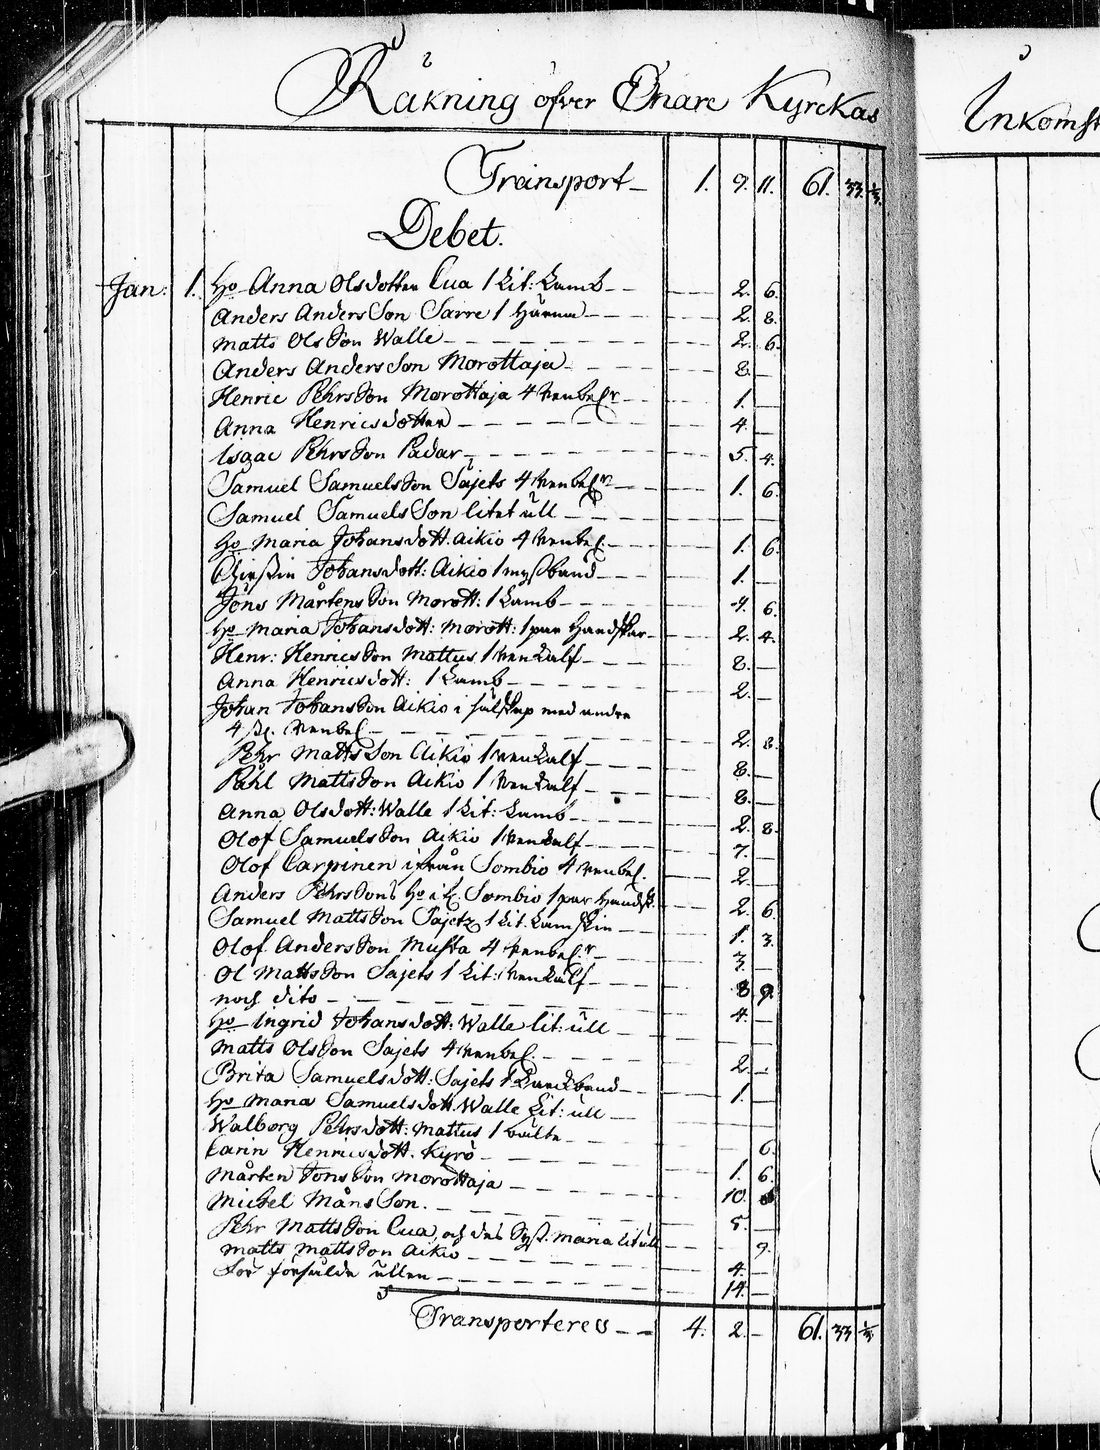 Räkning öfver Enare Kyrckas
Inkomst
Transport 1. 9. 11. 61. 33. 1/3.
Debet.
Jan: 1. Ho Anna Olsdotter Cua 1 Lit: Lamb 2. 6.
Anders Andersson Sarre 1 2. 8.
Matts Olsson Walle 2. 6.
Anders Andersson Morottaja 8.
Henric Pehrsson Morottaja 4 1.
Anna Henricsdotter 4.
Isaac Pehrsson Padar 5. 4.
Samuel Samuelsson Sajets 4 1. 6.
Samuel Samuelsson litet ull
Ho Maria Johansdott. Aikio 4 renbel. 1. 6.
Johansdott: Aikio 1 myssband 1.
Jöns Mårtensson Morott: 1 Lamb 4. 6.
Ho Maria Johansdott: Morott: 1 par Handskar 2. 4.
Henr: Henricsson Mattus 1 renkalf 8.
Anna Henricsdott: 1 Lamb 2.
Johan Johansson Aikio i sälskap med andra
4 st. renbel. 2. 8.
Pehr Mattsson Aikio 1 renkalf 8.
Påhl Mattsson Aikio 1 renkalf 8.
Anna Olsdott: Walle 1 Lit: Lamb 2. 8.
Olof Samuelsson Aikio 1 renkalf 7.
Olof Carpinen ifrån Sombio 4 renbel. 2.
Anders Pehrssons Ho Sombio 1 par Handsk. 2. 6.
Samuel Mattsson Sajetz 1 Lit. Lamskin 1. 3.
Olof Andersson Musta 4 3.
Ol Mattsson Sajets 1 Lit: renkalf 8. 9.
noch dito 4.
Ho Ingrid Johansdott: Walle lit: ull
Matts Olsson Sajets 4 renbel. 2.
Brita Samuelsdott: Sajets 1 1.
Ho Maria Samuelsdott. Walle Lit: ull
Walborg Pehrsdott: Mattus 1 bälte 6.
Carin Henricsdott. Kyrö 1. 6.
Mårten Jonsson Morottaja 10.
Michel Månsson. 5.
Pehr Mattsson Cua, och des Syst. Maria lit ull 9.
Matts Mattsson Aikio 4.
För försålde ullen 14.
Transporteres 4. 2. 61. 33 1/3.